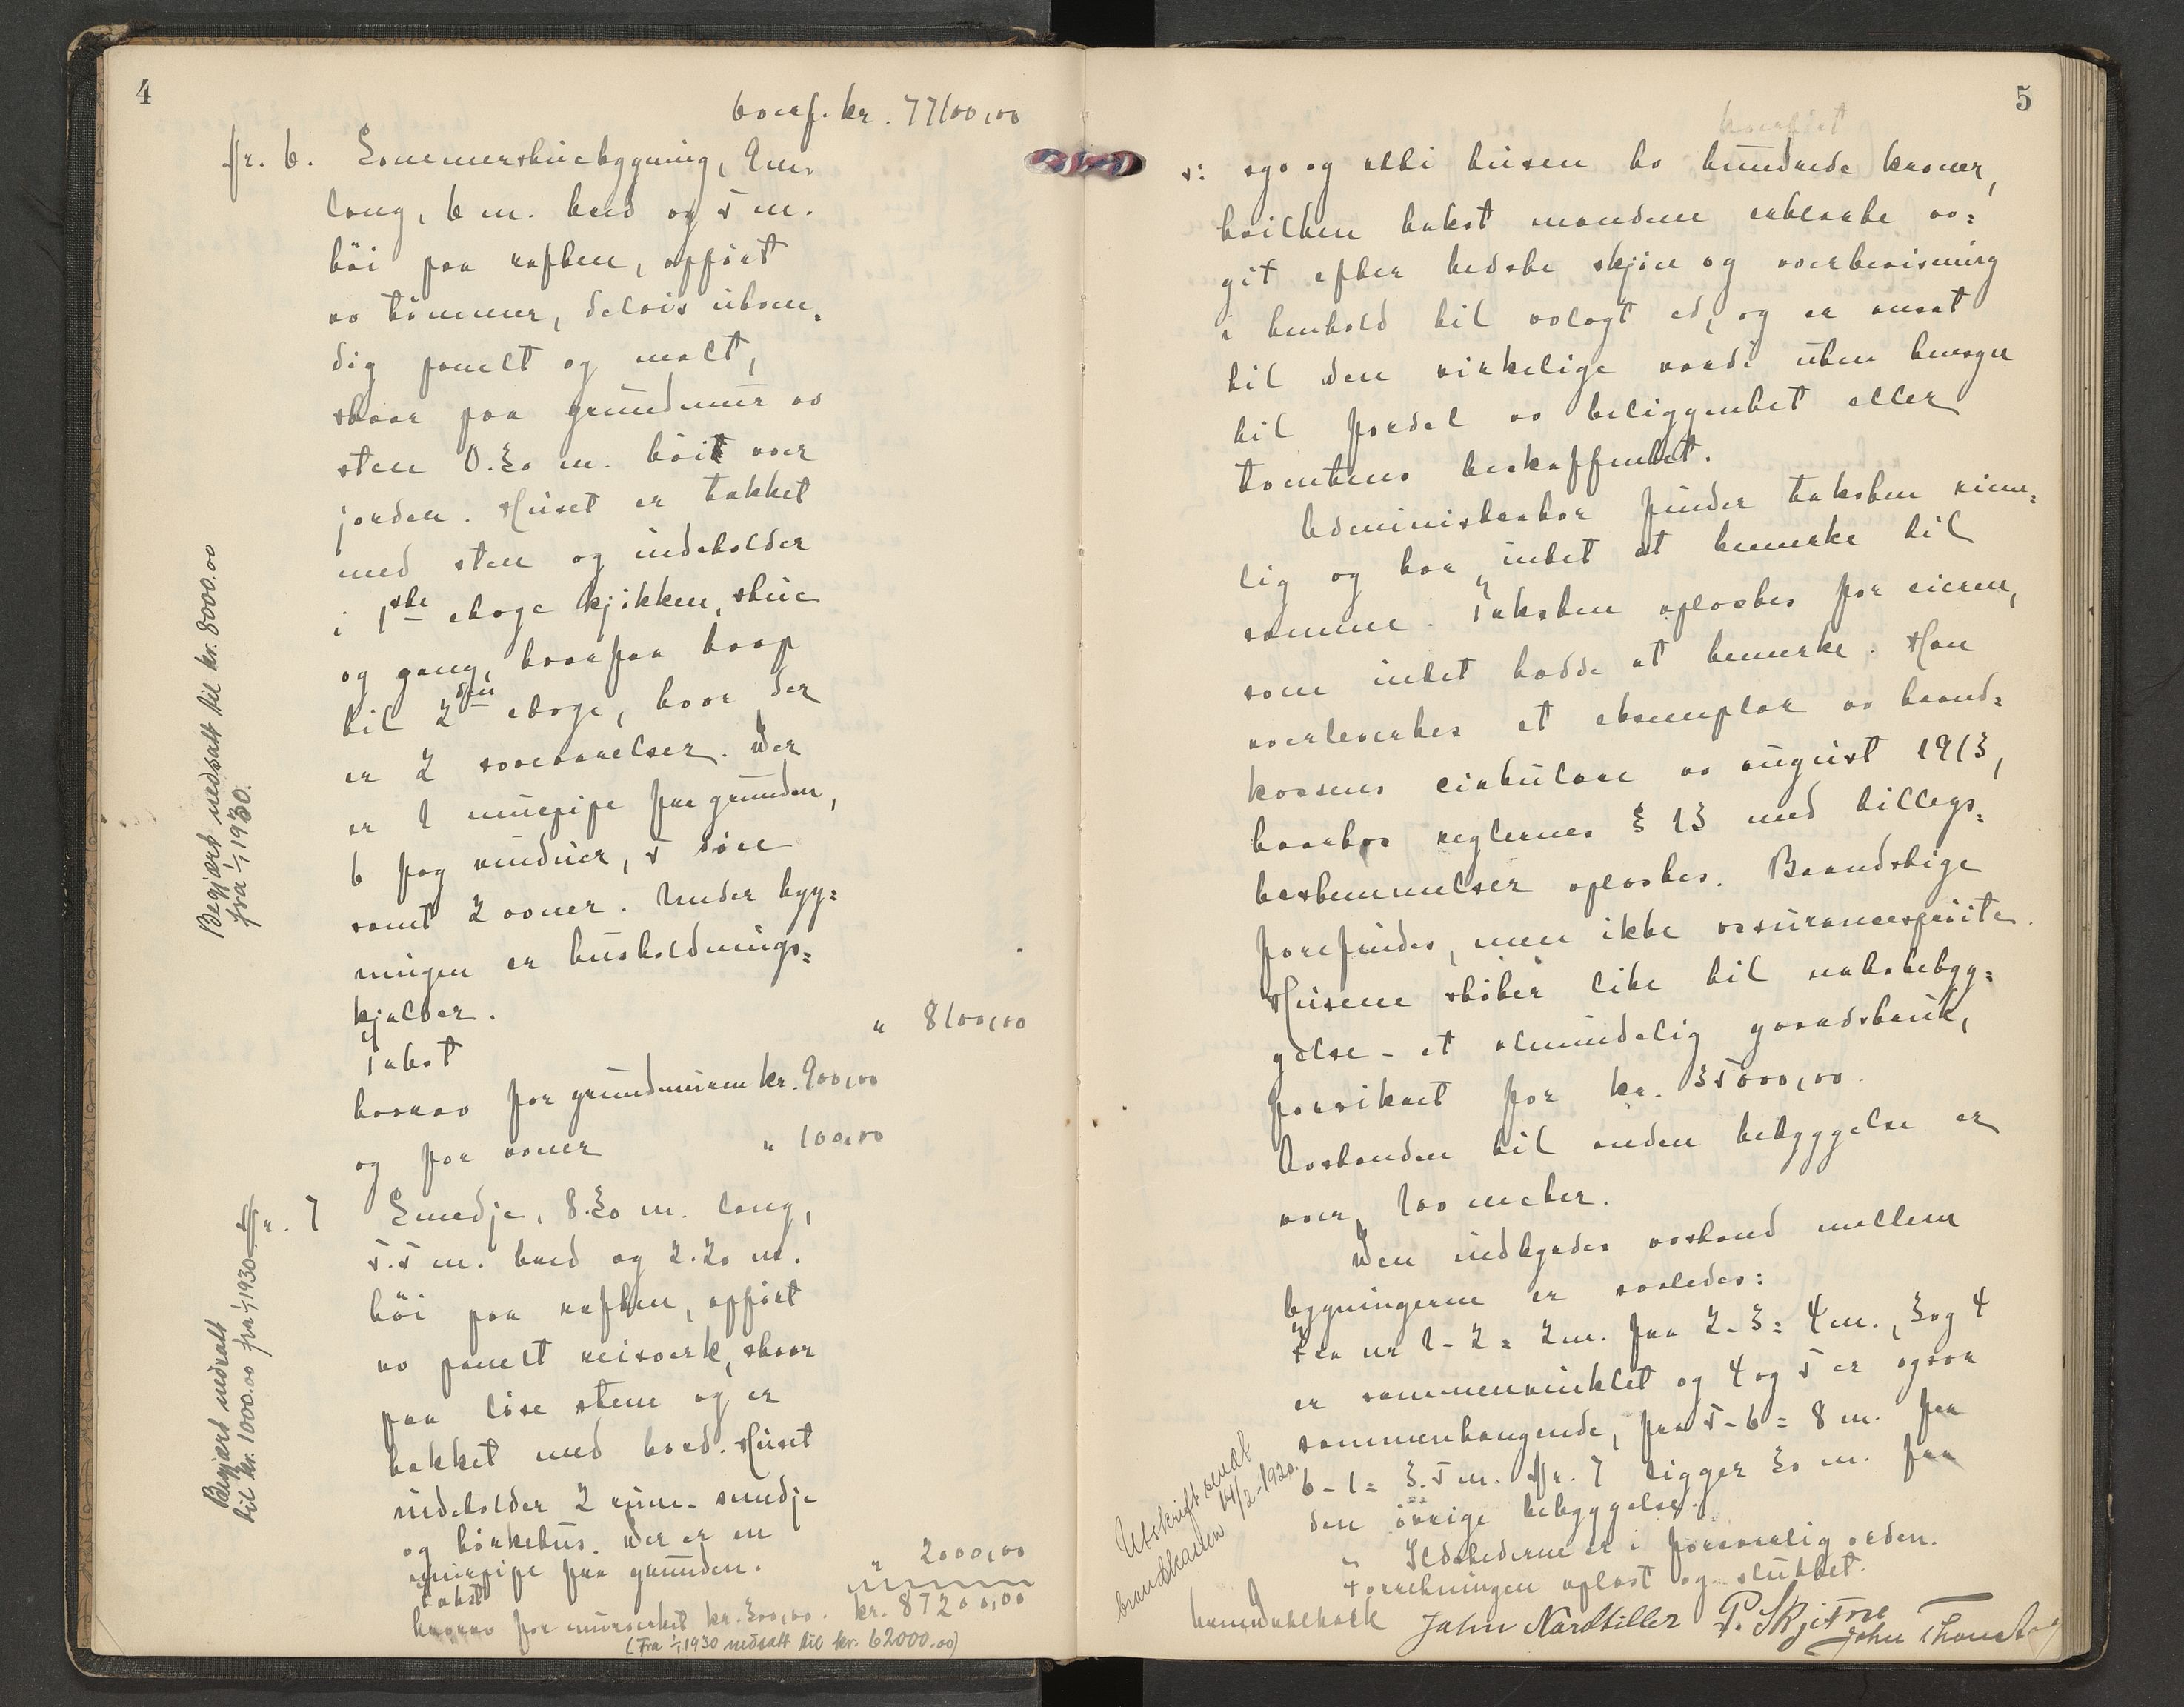 4
overf. kr. 77100,00
Nr. 6. Sommerstuebygning, 9 m.
lang, 6 m. bred og 5 m.
høi paa raften, opført
av tømmer, delvis utven=
dig panelt og malt,
staar paa grundmur av
sten 0.30 m. høit over
jorden. Huset er takket
med sten og indeholder
i 1ste etage kjøkken, stue
og gang, hvorfra trap
til 2den etage, hvor der
er 2 soveværelser. Der
er 1 murpipe fra grunden,
6 fag vinduer, 5 døre
samt 2 ovner. Under byg=
ningen er husholdnings=
kjælder.
Takst " 8100,00
hvorav for grundmuren kr. 900,00
og for ovner " 100,00
Nr. 7 Smedje, 8.30 m. lang,
5.5 m. bred og 2.20 m.
høi paa raften, opført
av panelt reisverk, staar
paa løse stene og er
takket med bord. Huset
indeholder 2 rum. smedje
og tørkehus. Der er en
murpipe fra grunden.
Takst " 2000,00
hvorav for murverket kr. 300,00. kr. 87200,00
(Fra 1/1 1930 nedsatt til kr. 62000.00)
Begjært nedsatt til kr. 8000.00
fra 1/1 1930.
Begjært nedsatt
til kr. 1000.00 fra 1/1 1930
5
ɔ: syv og otti tusen to hundrede kroner,
hvilken takst mændene erklærte av=
git efter bedste skjøn og overbevisning
i henhold til avlagt ed, og er ansat
til den virkelige værdi uten hensyn
til fordel av beliggenhet eller
tomtens beskaffenhet.
Administrator finder taksten rime=
lig og har intet at bemerke til
samme. Taksten oplæstes for eieren,
som intet hadde at bemerke. Han
overlevertes et eksemplar av brand=
kassens cirkulære av august 1913,
hvorhos reglernes § 13 med tillægs=
bestemmelser oplæstes. Brandstige
forefindes, men ikke assurancesprøite.
Husene støter like til nabobebyg=
gelse - et almindelig gaardsbruk,
forsikret for kr. 35000,00.
Avstanden til anden bebyggelse er
over 100 meter.
Den indbyrdes avstand mellem
bygningerne er saaledes:
Fra nr 1-2 = 2 m. fra 2-3 = 4 m., 3 og 4
er sammenvinklet og 4 og 5 er ogsaa
sammenhængende, fra 5-6 = 8 m. fra
6-1 = 3.5 m. Nr. 7 ligger 30 m. fra
den øvrige bebyggelse.
Ildstederne er i forsvarlig orden.
Forretningen oplæst og sluttet.
John Nardstiller P. Skjetne
John
Utskrift sendt
brandkassen 14/2-1920.